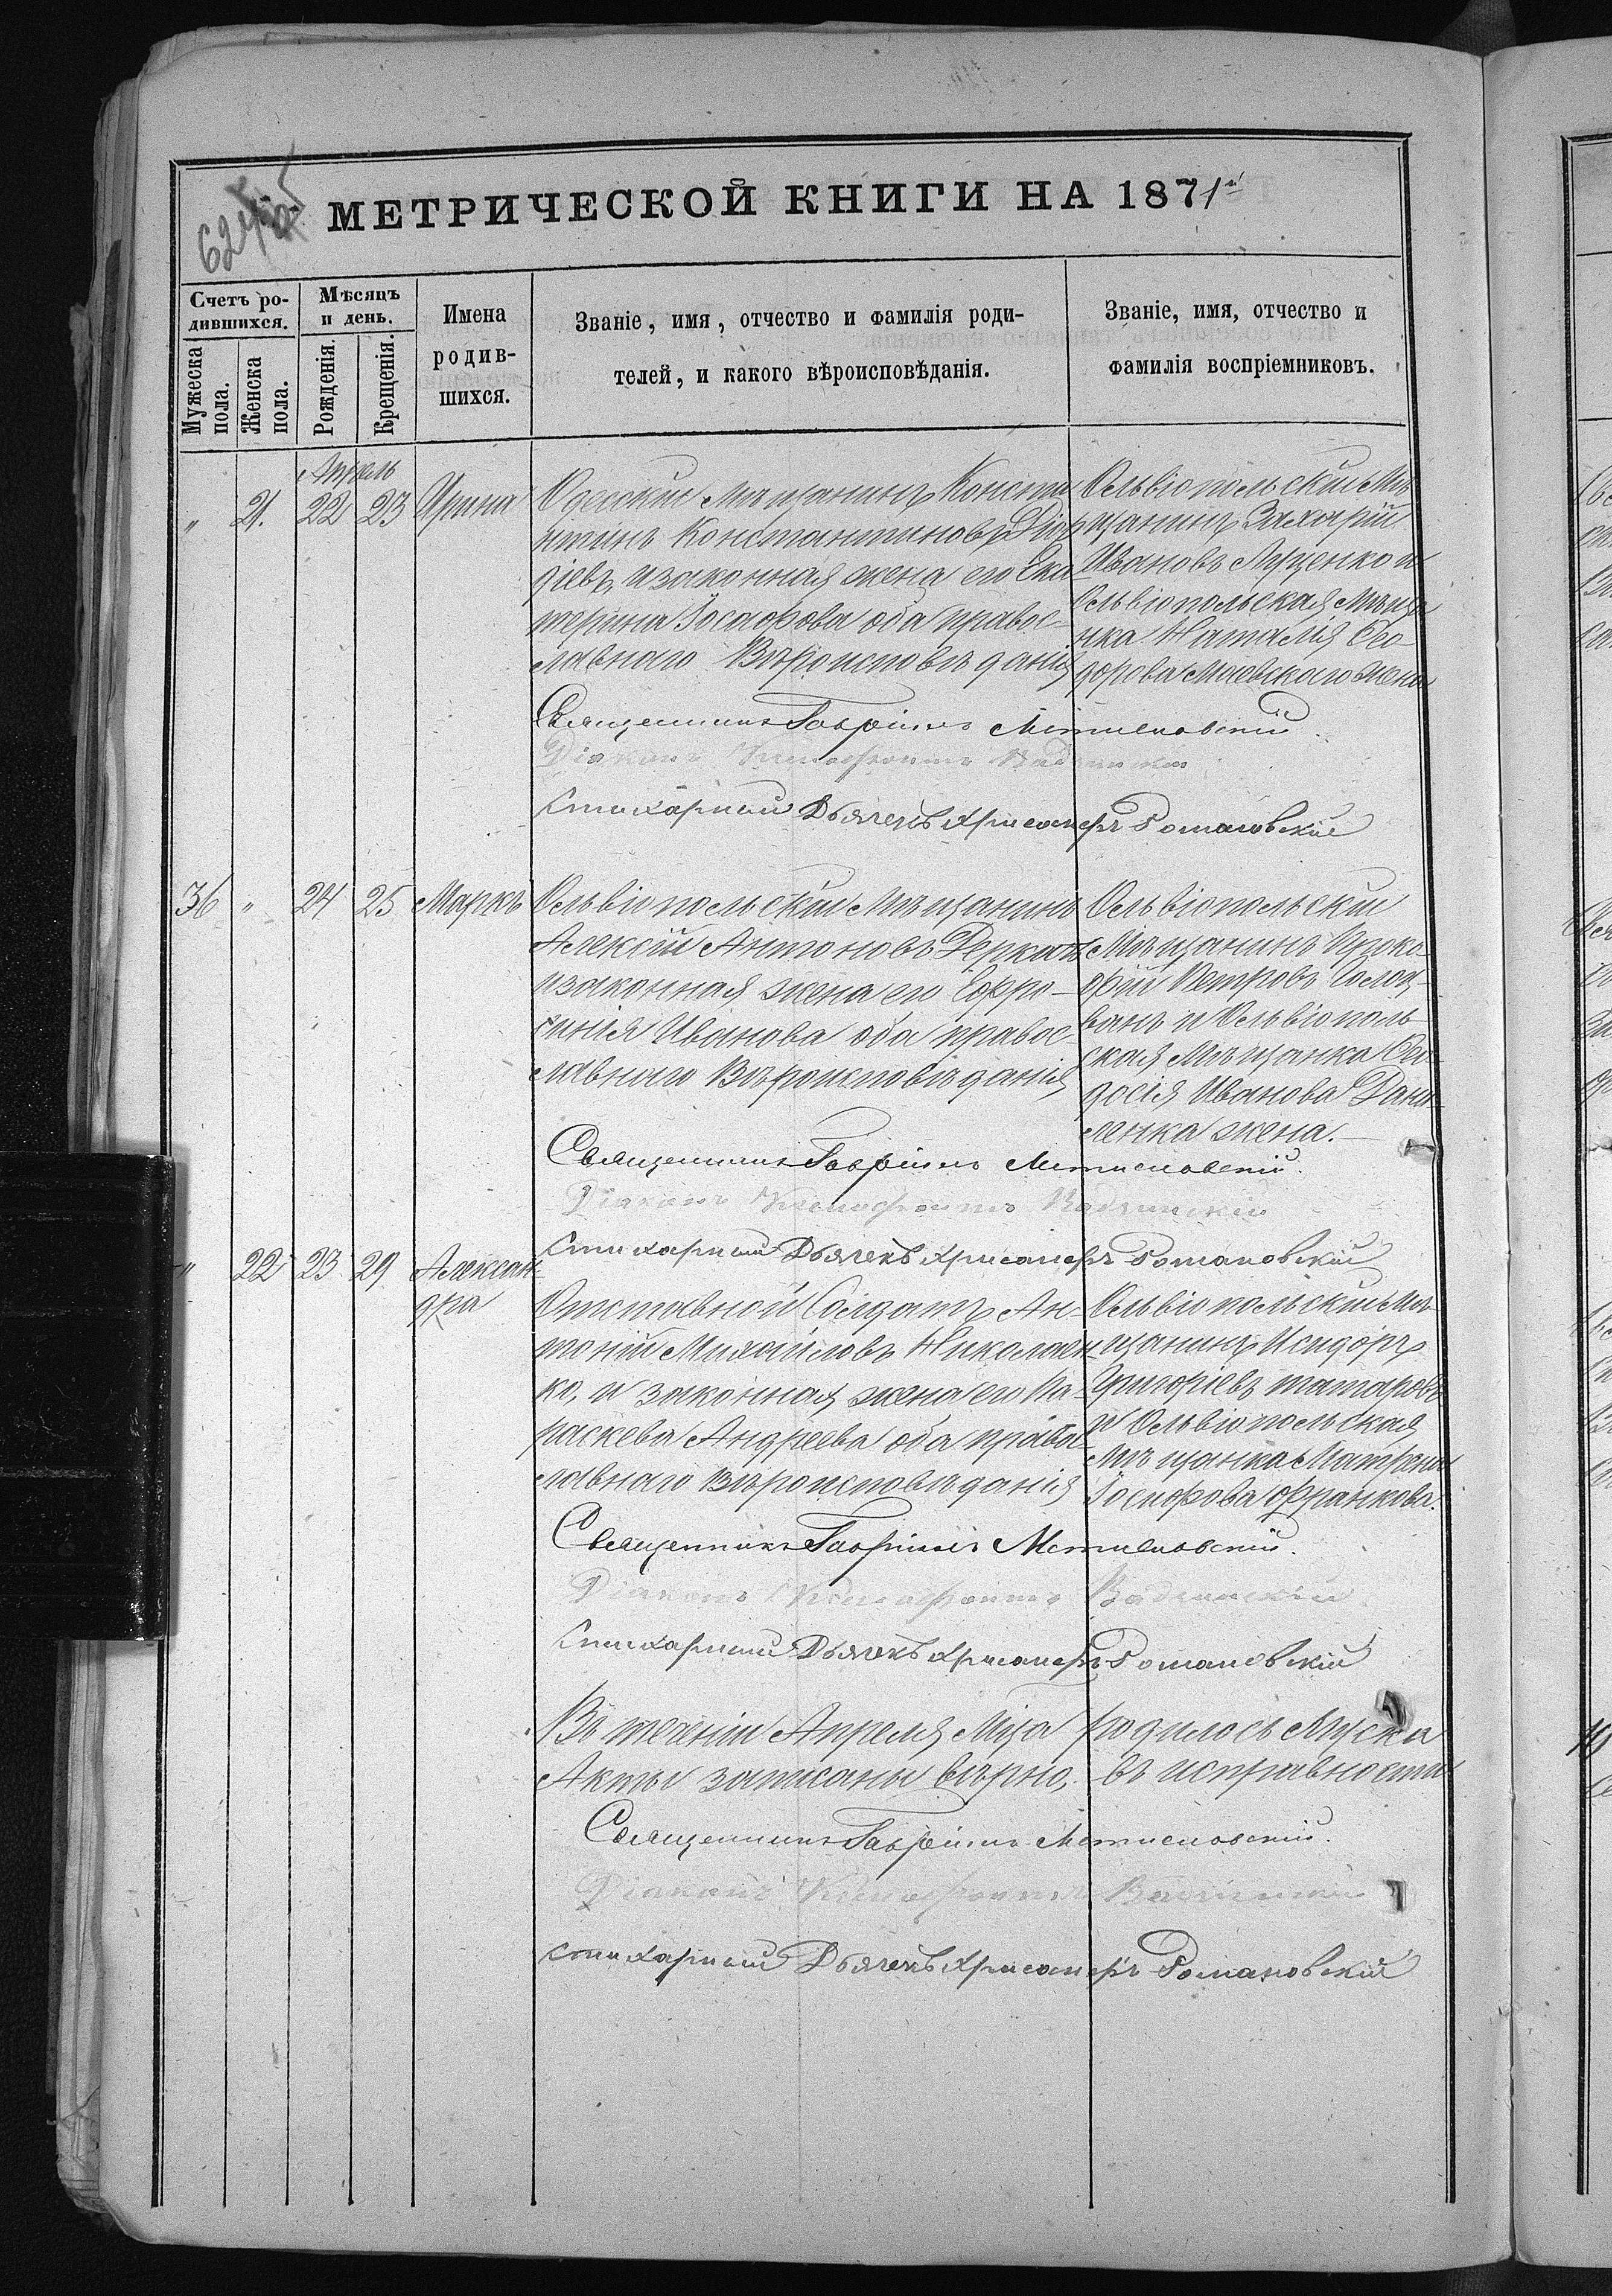 МЕТРИЧЕСКОЙ КНИГИ НА 1871й
Счетъ ро-
дившихся.
Мужеска пола.
Женска пола.
Мѣсяцъ
и день.
Рожденія.
Крещенія.
Имена
родив-
шихся.
Званіе, имя, отчество и фамилія роди-
телей, и какого вѣроисповѣданія.
Званіе, имя, отчество и
фамилія воспріемниковъ.
Апрель
" 21. 22 23 Ирина
Одесскій Мѣщанинъ Конста
нтинъ Константиновъ
діевъ, и законная жена его Ека-
терина Іосафова оба правос-
лавнаго Вѣроисповѣданія
Ольвіопольскій Мѣ
щанинъ Захарій
Ивановъ Яценко и
Ольвіопольская Мѣщан
нка Наталія Ѳео-
дорова Маевскаго жена
Священникъ Гавріилъ Мстиславскій.
Діаконъ Ксенофонтъ
Стихарный Дьячекъ Хрисанфъ Романовскій
36 " 24 25 Маркъ
Ольвіопольскій Мѣщанинъ
Алексѣй Антоновъ Деркачъ
и законная жена его Ефро-
синія Иванова оба правос-
лавнаго Вѣроисповѣданія
Ольвіопольскій
Мѣщанинъ Проко-
фій Петровъ Голо
ванъ и Ольвіополь
ская Мѣщанка Ѳео-
досія Иванова Дани-
ленка жена.
Священникъ Гавріилъ Мстиславскій.
Діаконъ Ксенофонтъ
Стихарный Дьячекъ Хрисанфъ Романовскій
" 22 23 29 Алексан-
дра
Отставной Солдатъ Ан-
тоній Михайловъ Николаен-
ко, и законная жена его Па-
раскева Андреева оба правос-
лавнаго вѣроисповѣданія
Ольвіопольскій Мѣ
щанинъ Исидоръ
Григоріевъ Татаровъ
и Ольвіопольская
Мѣщанка Матрона
Іосифова Франкова.
Священникъ Гавріилъ Мстиславскій.
Діаконъ Ксенофонтъ
Стихарный Дьячекъ Хрисанфъ Романовскій
Въ теченіи Апреля Мца родилось Мужска
Акты записаны вѣрно, въ исправности
Священникъ Гавріилъ Мстиславскій.
Діаконъ Ксенофонтъ
Стихарный Дьячекъ Хрисанфъ Романовскій